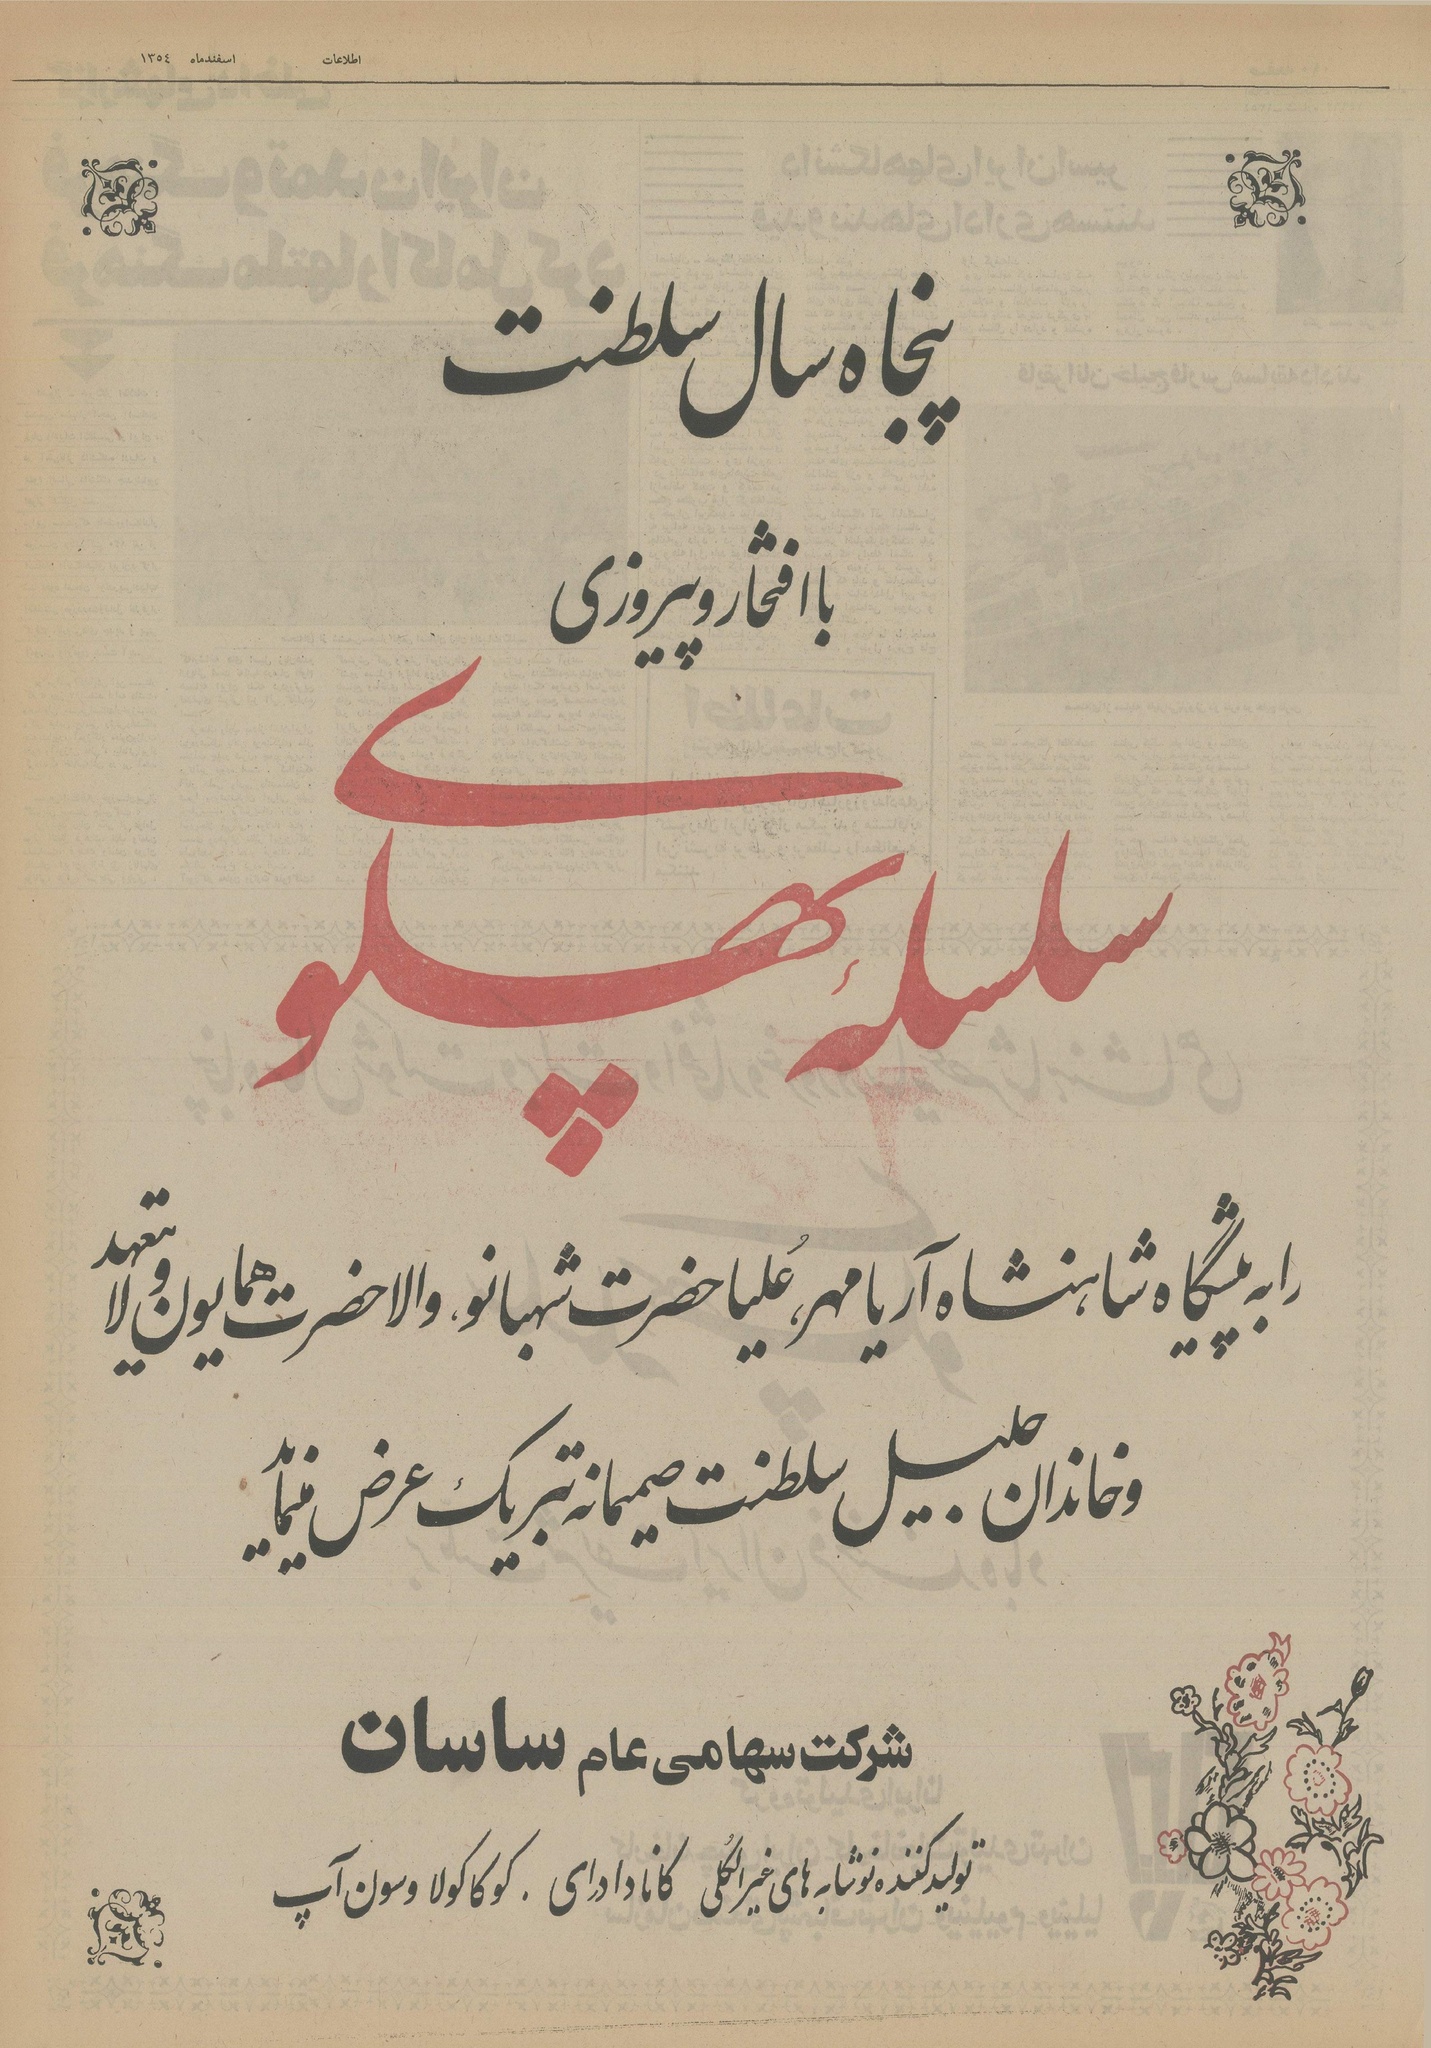 اطلاعات اسفندماه ۱۳۵٤
پنجاه سال سلطنت
با افتخار و پیروزی
سلسلهٔ پهلوی
را به پیشگاه شاهنشاه آریامهر، عُلیاحضرت شهبانو، والاحضرت همایون ولایتعهد
و خاندان جلیل سلطنت صمیمانه تبریک عرض مینماید
شرکت سهامی عام ساسان
تولید کننده نوشابه های غیر الکلی کانادا درای . کوکا کولا و سون آپ